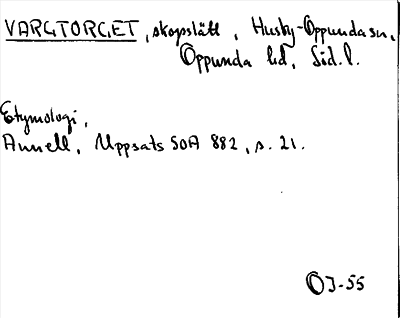 VARGTORGET, skogslätt, Husby-Oppunda sn,
Oppunda hd, Södl.
Etymologi,
Annell, Uppsats SOA 882, s. 21.
OJ-55